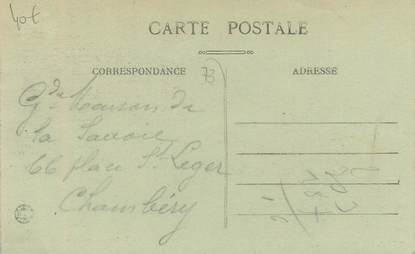 40€
CARTE POSTALE
CORRESPONDANCE
73
ADRESSE
Gde Maison de
la Savoie
66 place St Leger
Chambéry